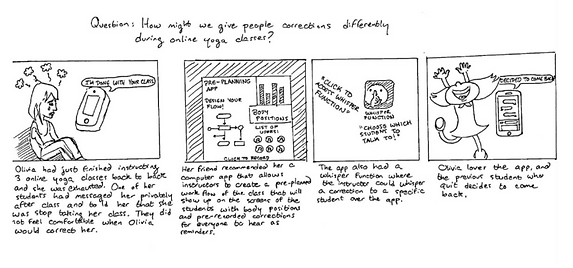 Question: How might we give people corrections differently
during online yoga classes?
I'M DONE WITH YOUR CLASS
Olivia had just finished instructing
3 online yoga classes back to back
and she was exhausted. One of her
students had messaged her privately
after class and told her that she
was stop taking her class. They did
not feel comfortable when Olivia
would correct her.
PRE-PLANNING
APP
DESIGN YOUR
FLOW!
BODY
POSITIONS
LIST OF
USERS:
CLICK TO RECORD
Her friend recommended her a
computer app that allows
instructors to create a pre-planned
work flow of the class that will
show up on the screens of the
students with body positions
and pre-recorded corrections
for everyone to hear as
reminders.
"CLICK TO
ACCESS WHISPER
FUNCTION"
WHISPER
FUNCTION
"CHOOSE WHICH
STUDENT TO
TALK TO!"
The app also had a
whisper function where
the instructor could whisper
a correction to a specific
student over the app.
DECIDED TO COME BACK
Olivia lover the app, and
the previous student who
quit decides to come
back.